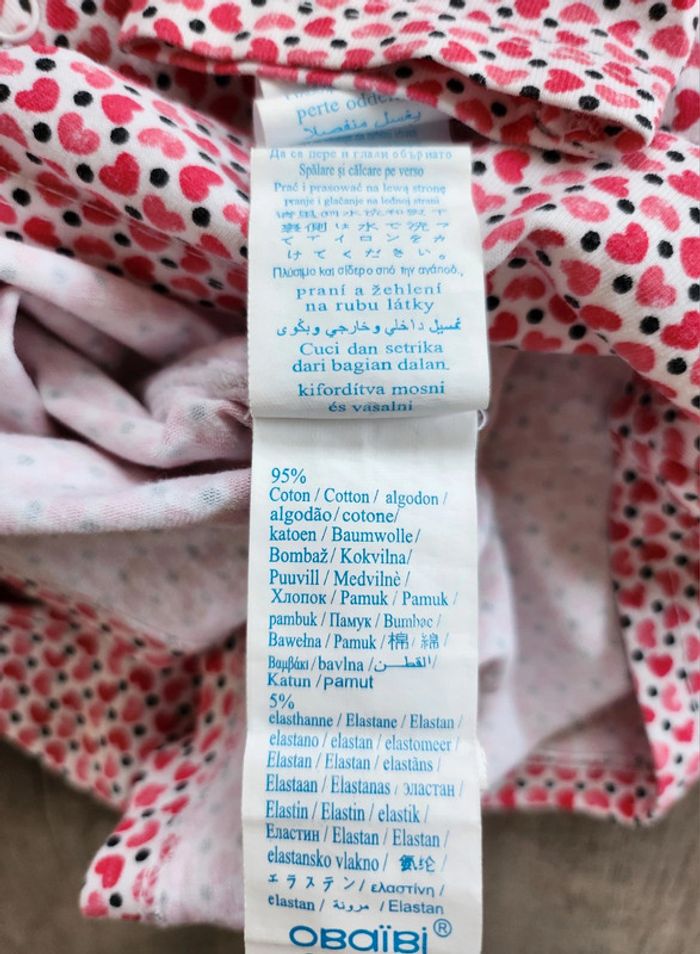 perte odder
يغسل منفصلا
Да се пере и глади обърнато
Spălare şi călcare pe verso
Prać i prasować na lewą stronę
pranje i glačanje na lednoj strani
裏側は水で洗っ
てアイロンをか
けてください。
Πλύσιμο και σίδερο από την ανάποδ.
praní a žehlení
na rubu látky
Cuci dan setrika
dari bagian dalan.
kifordítva mosni
és vasalni
95%
Coton / Cotton / algodon /
algodão / cotone/
katoen / Baumwolle/
Bombaž / Kokvilna/
Puuvill / Medvilnė /
Хлопок / Pamuk / Pamuk /
pambuk / Памук / Bumbac /
Bawełna / Pamuk / 棉 / 綿 /
Βαμβάκι / bavlna / القطن /
Katun / pamut
5%
elasthanne / Elastane / Elastan /
elastano / elastan / elastomeer /
Elastan / Elastan / elastāns /
Elastaan / Elastanas / эластан /
Elastin / Elastin / elastik /
Еластин / Elastan / Elastan /
elastansko vlakno / 氨纶 /
エラステン / ελαστίνη /
elastan / مرونة / Elastan
OBAÏBI®